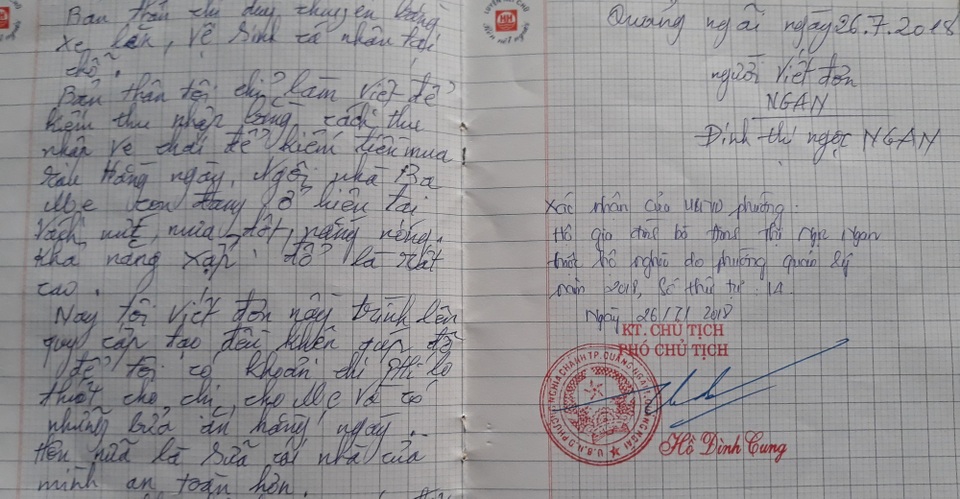 Bản thân chỉ duy chuyển bằng
xe lăn, vệ sinh cá nhân tại
chỗ.
Bản thân tôi chỉ làm việt để
kiếm thu nhập bằng cách thu
nhập ve chai để kiếm tiền mua
rau hàng ngày. Ngôi nhà Ba
Mẹ con đang ở hiên tại
Vách nứt, mưa dột, nắng nóng.
khả năng xập đổ là rất
cao.
Nay tôi viết đơn này trình lên
quý cấp tạo đều kiên giúp đỡ
để tôi có khoản chi phí lo
thuốt cho chị, cho Mẹ và có
những bửa ăn hằng ngày.
Hơn nữa là sữa cái nhà của
mình an toàn hơn.
HH
Quảng ngãi ngày 26.7.2018
người viết đơn
NGAN
Đinh thị ngọc NGAN
Xác nhận của UBND phường.
Hộ gia đình bà Đinh Thị Ngọc Ngan
thuộc hộ nghèo do phường quản lý
năm 2018, Số thứ tự: 14.
Ngày 26/7/2018
KT. CHỦ TỊCH
PHÓ CHỦ TỊCH
U.B.N.D PHƯỜNG NGHĨA CHÁNH TP. QUẢNG NGÃI T. QUẢNG NGÃI
Hồ Đình Cung